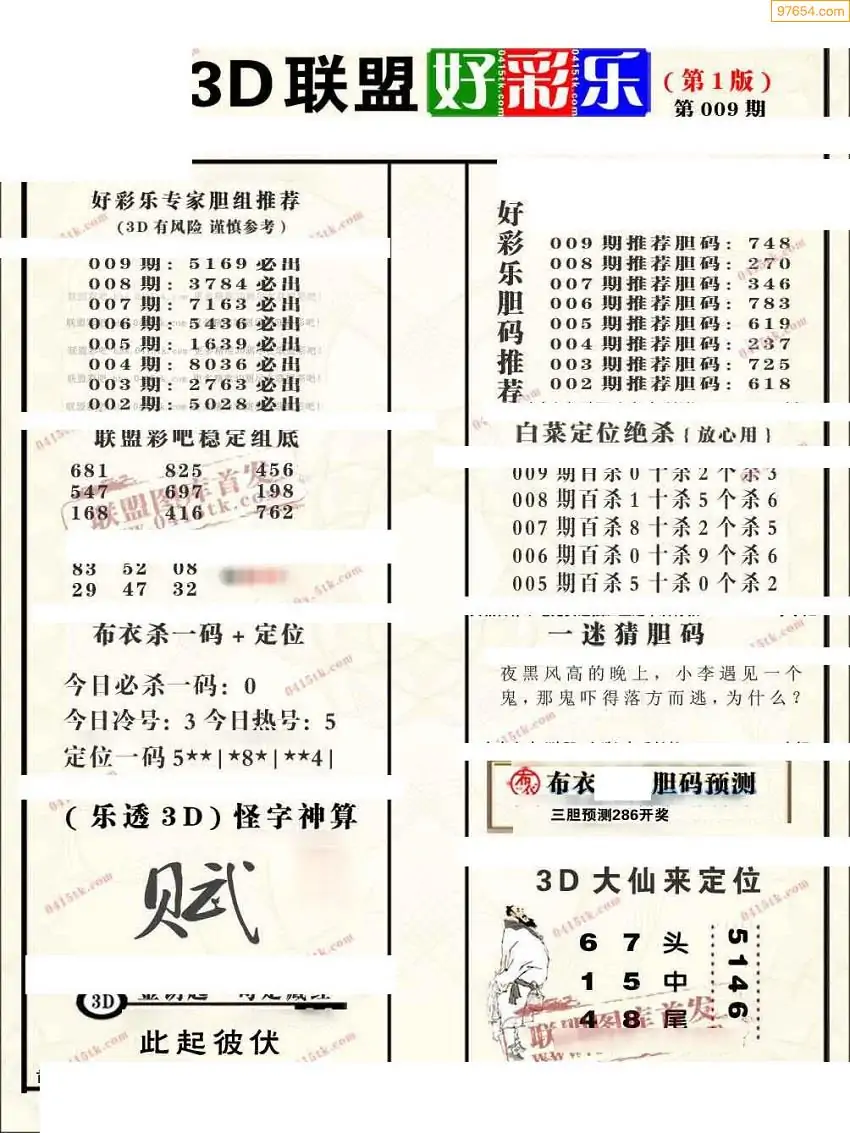 97654.com
3D联盟好彩乐(第1版)
第009期
好彩乐专家胆组推荐
(3D有风险 谨慎参考)
009期:5169必出
008期:3784必出
007期:7163必出
006期:5436必出
005期:1639必出
004期:8036必出
003期:2763必出
002期:5028必出
联盟彩吧稳定组底
681 825 456
547 697 198
168 416 762
83 52 08
29 47 32
布衣杀一码+定位
今日必杀一码:0
今日冷号:3 今日热号:5
定位一码5**|*8*|**4|
(乐透3D)怪字神算
赋
3D
此起彼伏
好彩乐胆码推荐
009期推荐胆码:748
008期推荐胆码:270
007期推荐胆码:346
006期推荐胆码:783
005期推荐胆码:619
004期推荐胆码:237
003期推荐胆码:725
002期推荐胆码:618
白菜定位绝杀{放心用}
009期百杀0十杀2个杀3
008期百杀1十杀5个杀6
007期百杀8十杀2个杀5
006期百杀0十杀9个杀6
005期百杀5十杀0个杀2
一迷猜胆码
夜黑风高的晚上,小李遇见一个
鬼,那鬼吓得落方而逃,为什么?
布衣 胆码预测
三胆预测286开奖
3D大仙来定位
6 7 头
1 5 中
4 8 尾
5146
联盟图库首发
0415tk.com